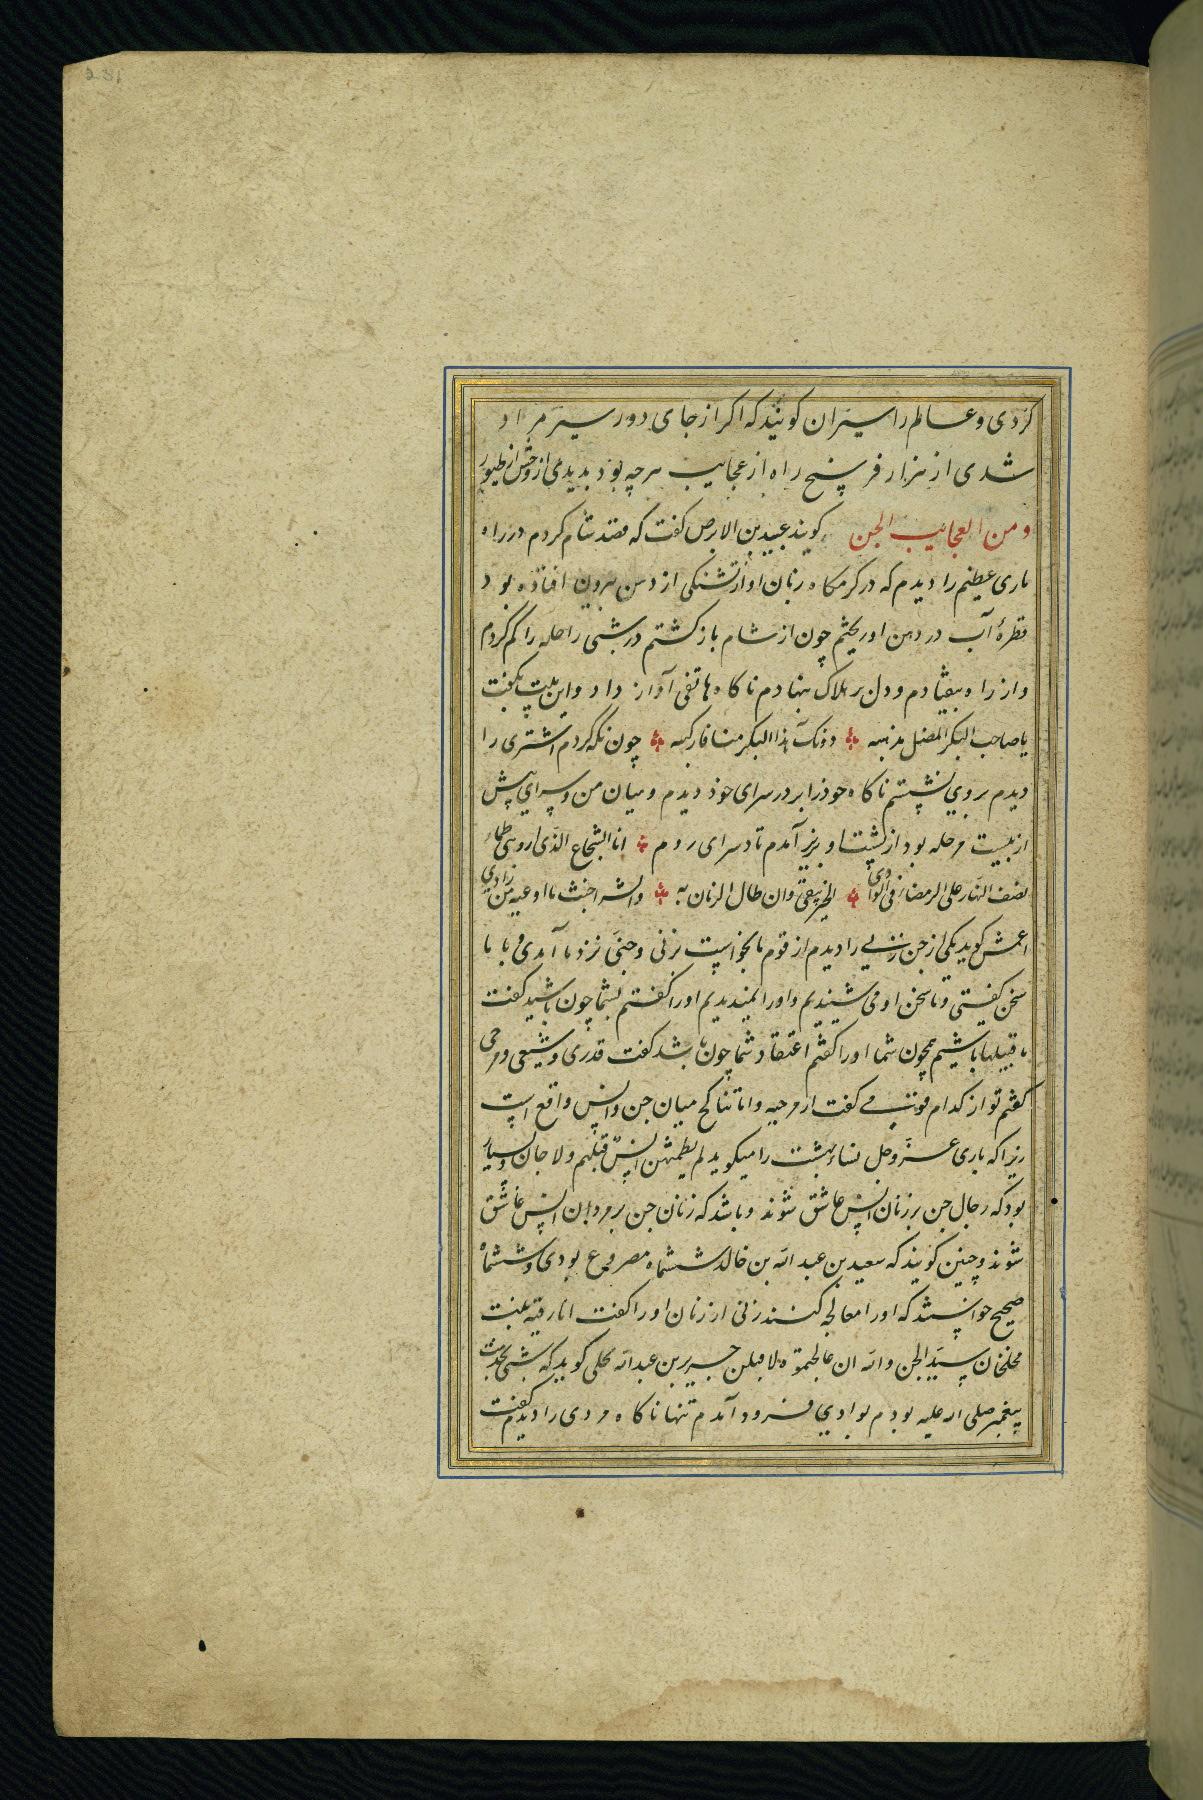 کردی و عالم را سیران کویند که اکر از جای دور سیر مراد
شدی از هزار فرسخ راه از عجایب هرچه بود بدیدی از وحش از طیور
و من العجایب الجن کویند عبید بن الابرص کفت که قصد شام کردم در راه
ماری عظیم را دیدم که در کرمکاه زبان او از تشنکی از دهن بیرون افتاده بود
قطرهٔ آب در دهن او ریختم چون از شام باز کشتم در شبی راحله را کم کردم
و از راه بیفتادم و دل بر هلاک بنهادم ناکاه هاتفی آواز داد و این بیت بکفت
یا صاحب البکر المضل مذهبه دونک هذا البکر منا فارکبه چون نکه کردم اشتری را
دیدم بر وی نشستم ناکاه خود را بر در سرای خود دیدم و میان من و سرای بیش
از بیست مرحله بود از پشت او بزیر آمدم تا در سرای روم انا الشجاع الذی ارویتنی ظماء
نصف النهار علی الرمضاء فی الوادی الخیر یبقی و ان طال الزمان به والشر اخبث ما اوعیه من زادی
اعمش کوید یکی از جن زنی را دیدم از قوم ما بخواست بزنی و جنی نزد ما آمدی و با ما
سخن کفتی و ما سخن او می شنیدیم و او را نمیدیدیم او را کفتم شما چون باشید کفت
ما قبیلها باشیم همچون شما او را کفتم اعتقاد شما چون باشد کفت قدری و شیعی و مرجی
کفتم تو از کدام قومی کفت از مرجیه و اما تناکح میان جن و انس واقع است
زیرا که باری عز و جل نساء بهشت را میکوید لم یطمثهن انس قبلهم و لا جان و بسیار
بود که رجال جن بر زنان انس عاشق شوند و باشد که زنان جن بر مردان انس عاشق
شوند و چنین کویند که سعید بن عبد الله بن خالد ششماه مصروع بودی و ششماه
صحیح خواستند که او را معالجه کنند زنی از زنان او را کفت انا رقیه بنت
ملخان سید الجن و الله ان عالجتموه لاقتلن جریر بن عبد الله بجلی کوید که شبی بخدمت
پیغمبر صلی الله علیه بودم بوادی فرود آمدم تنها ناکاه مردی را دیدم کفت